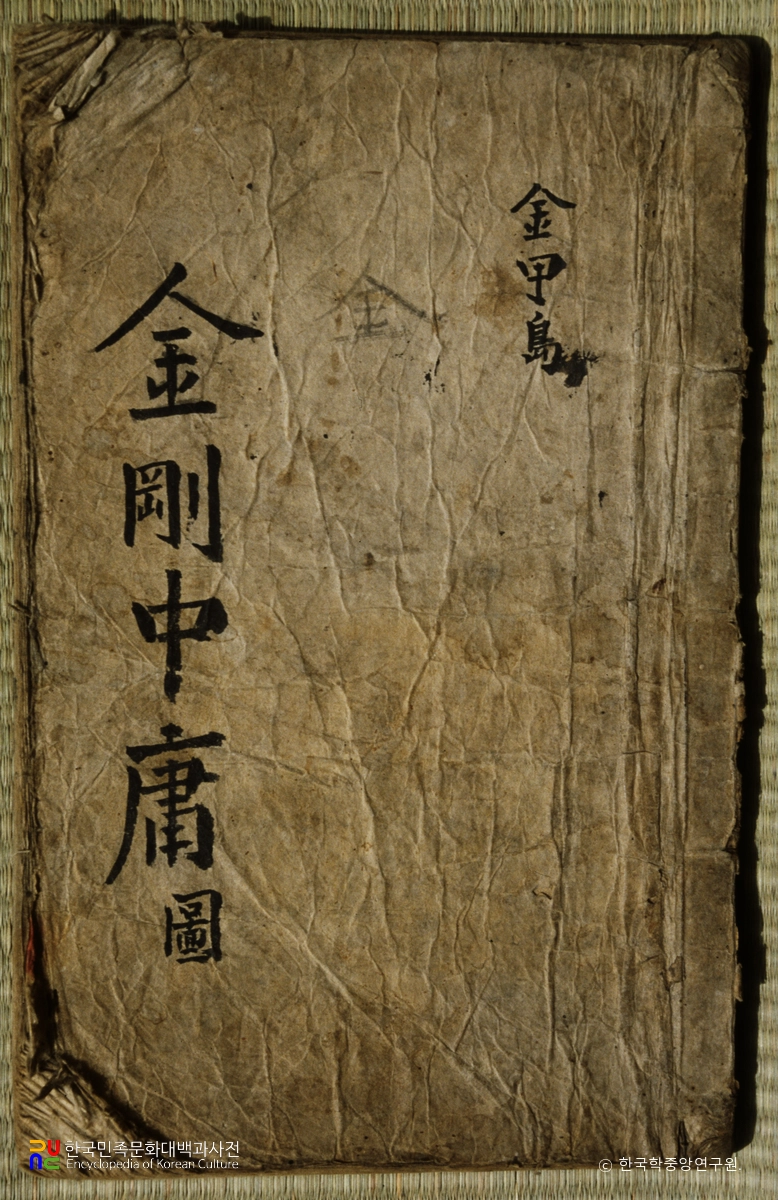 金甲島
金
金剛中庸圖
한국민족문화대백과사전
Encyclopedia of Korean Culture
© 한국학중앙연구원